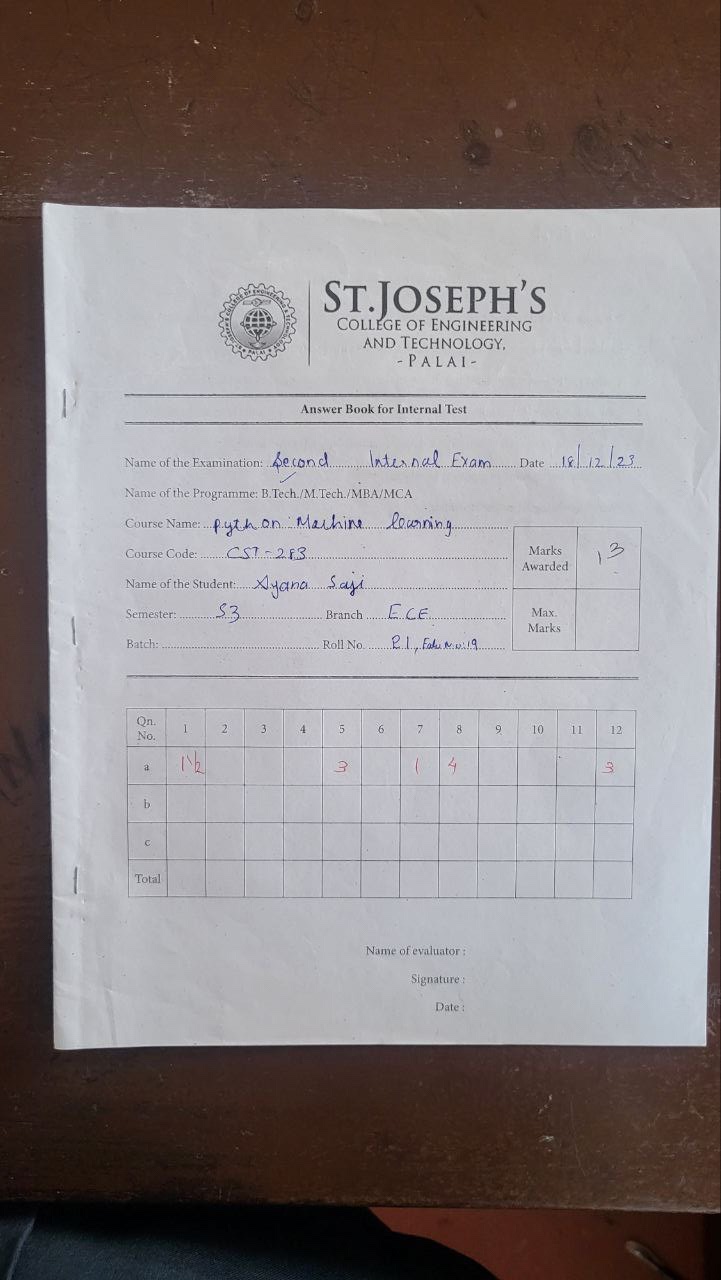 ST.JOSEPH'S
COLLEGE OF ENGINEERING
AND TECHNOLOGY,
- PALAI -
Answer Book for Internal Test
Name of the Examination: Second Internal Exam Date 18/12/23
Name of the Programme: B.Tech./M.Tech./MBA/MCA
Course Name: python: Machine learning
Course Code: CST-283
Marks Awarded 13
Name of the Student: Ayana Saji
Semester: S3 Branch ECE
Max. Marks
Batch: Roll No. 21,
Qn. No. 1 2 3 4 5 6 7 8 9 10 11 12
a 1½ 3 1 4 3
b
c
Total
Name of evaluator :
Signature :
Date :